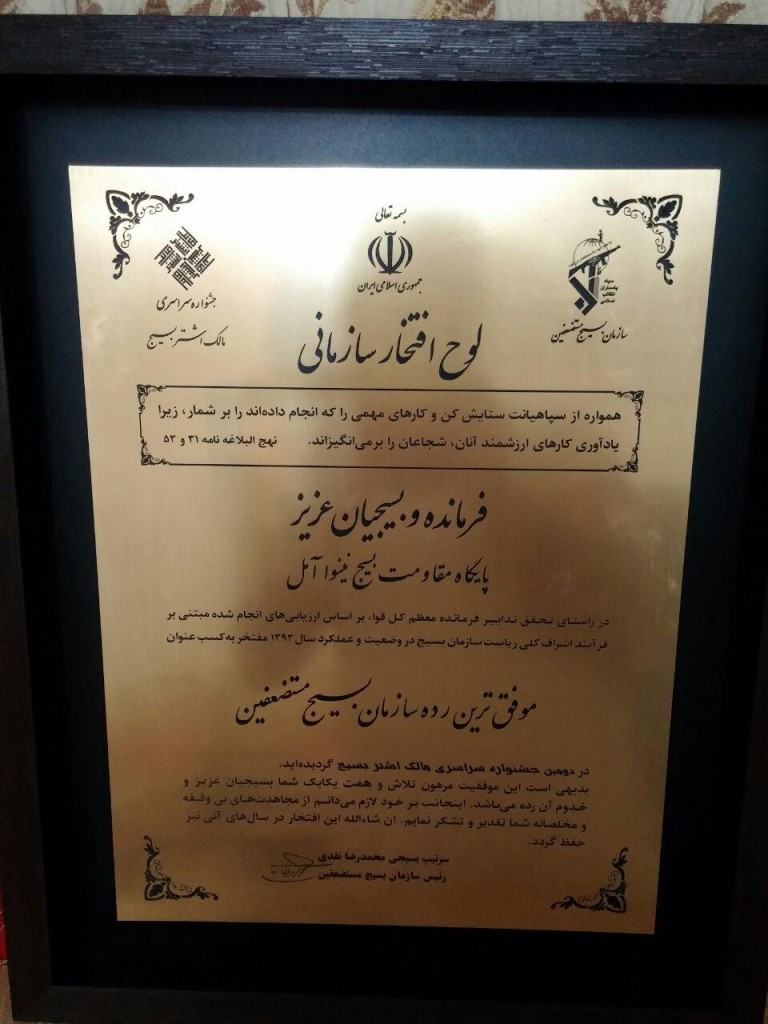 بسمه تعالی
جمهوری اسلامی ایران
جشنواره سراسری
مالک اشتر بسیج
سپاه
پاسداران
انقلاب
اسلامی
سازمان بسیج مستضعفین
لوح افتخار سازمانی
همواره از سپاهیانت ستایش کن و کارهای مهمی را که انجام داده‌اند را بر شمار، زیرا
یادآوری کارهای ارزشمند آنان، شجاعان را برمی‌انگیزاند. نهج البلاغه نامه ۳۱ و ۵۳
فرمانده و بسیجیان عزیز
پایگاه مقاومت بسیج نینوا آمل
در راستای تحقق تدابیر فرمانده معظم کل قوا، بر اساس ارزیابی‌های انجام شده مبتنی بر
فرآیند اشراف کلی ریاست سازمان بسیج در وضعیت و عملکرد سال ۱۳۹۲ مفتخر به کسب عنوان
موفق ترین رده سازمان بسیج مستضعفین
در دومین جشنواره سراسری مالک اشتر بسیج گردیده‌اید.
بدیهی است این موفقیت مرهون تلاش و همت یکایک شما بسیجیان عزیز و
خدوم آن رده می‌باشد. اینجانب بر خود لازم می‌دانم از مجاهدت‌های بی وقفه
و مخلصانه شما تقدیر و تشکر نمایم. ان شاءالله این افتخار در سال‌های آتی نیز
حفظ گردد.
سرتیپ بسیجی محمدرضا نقدی
رئیس سازمان بسیج مستضعفین